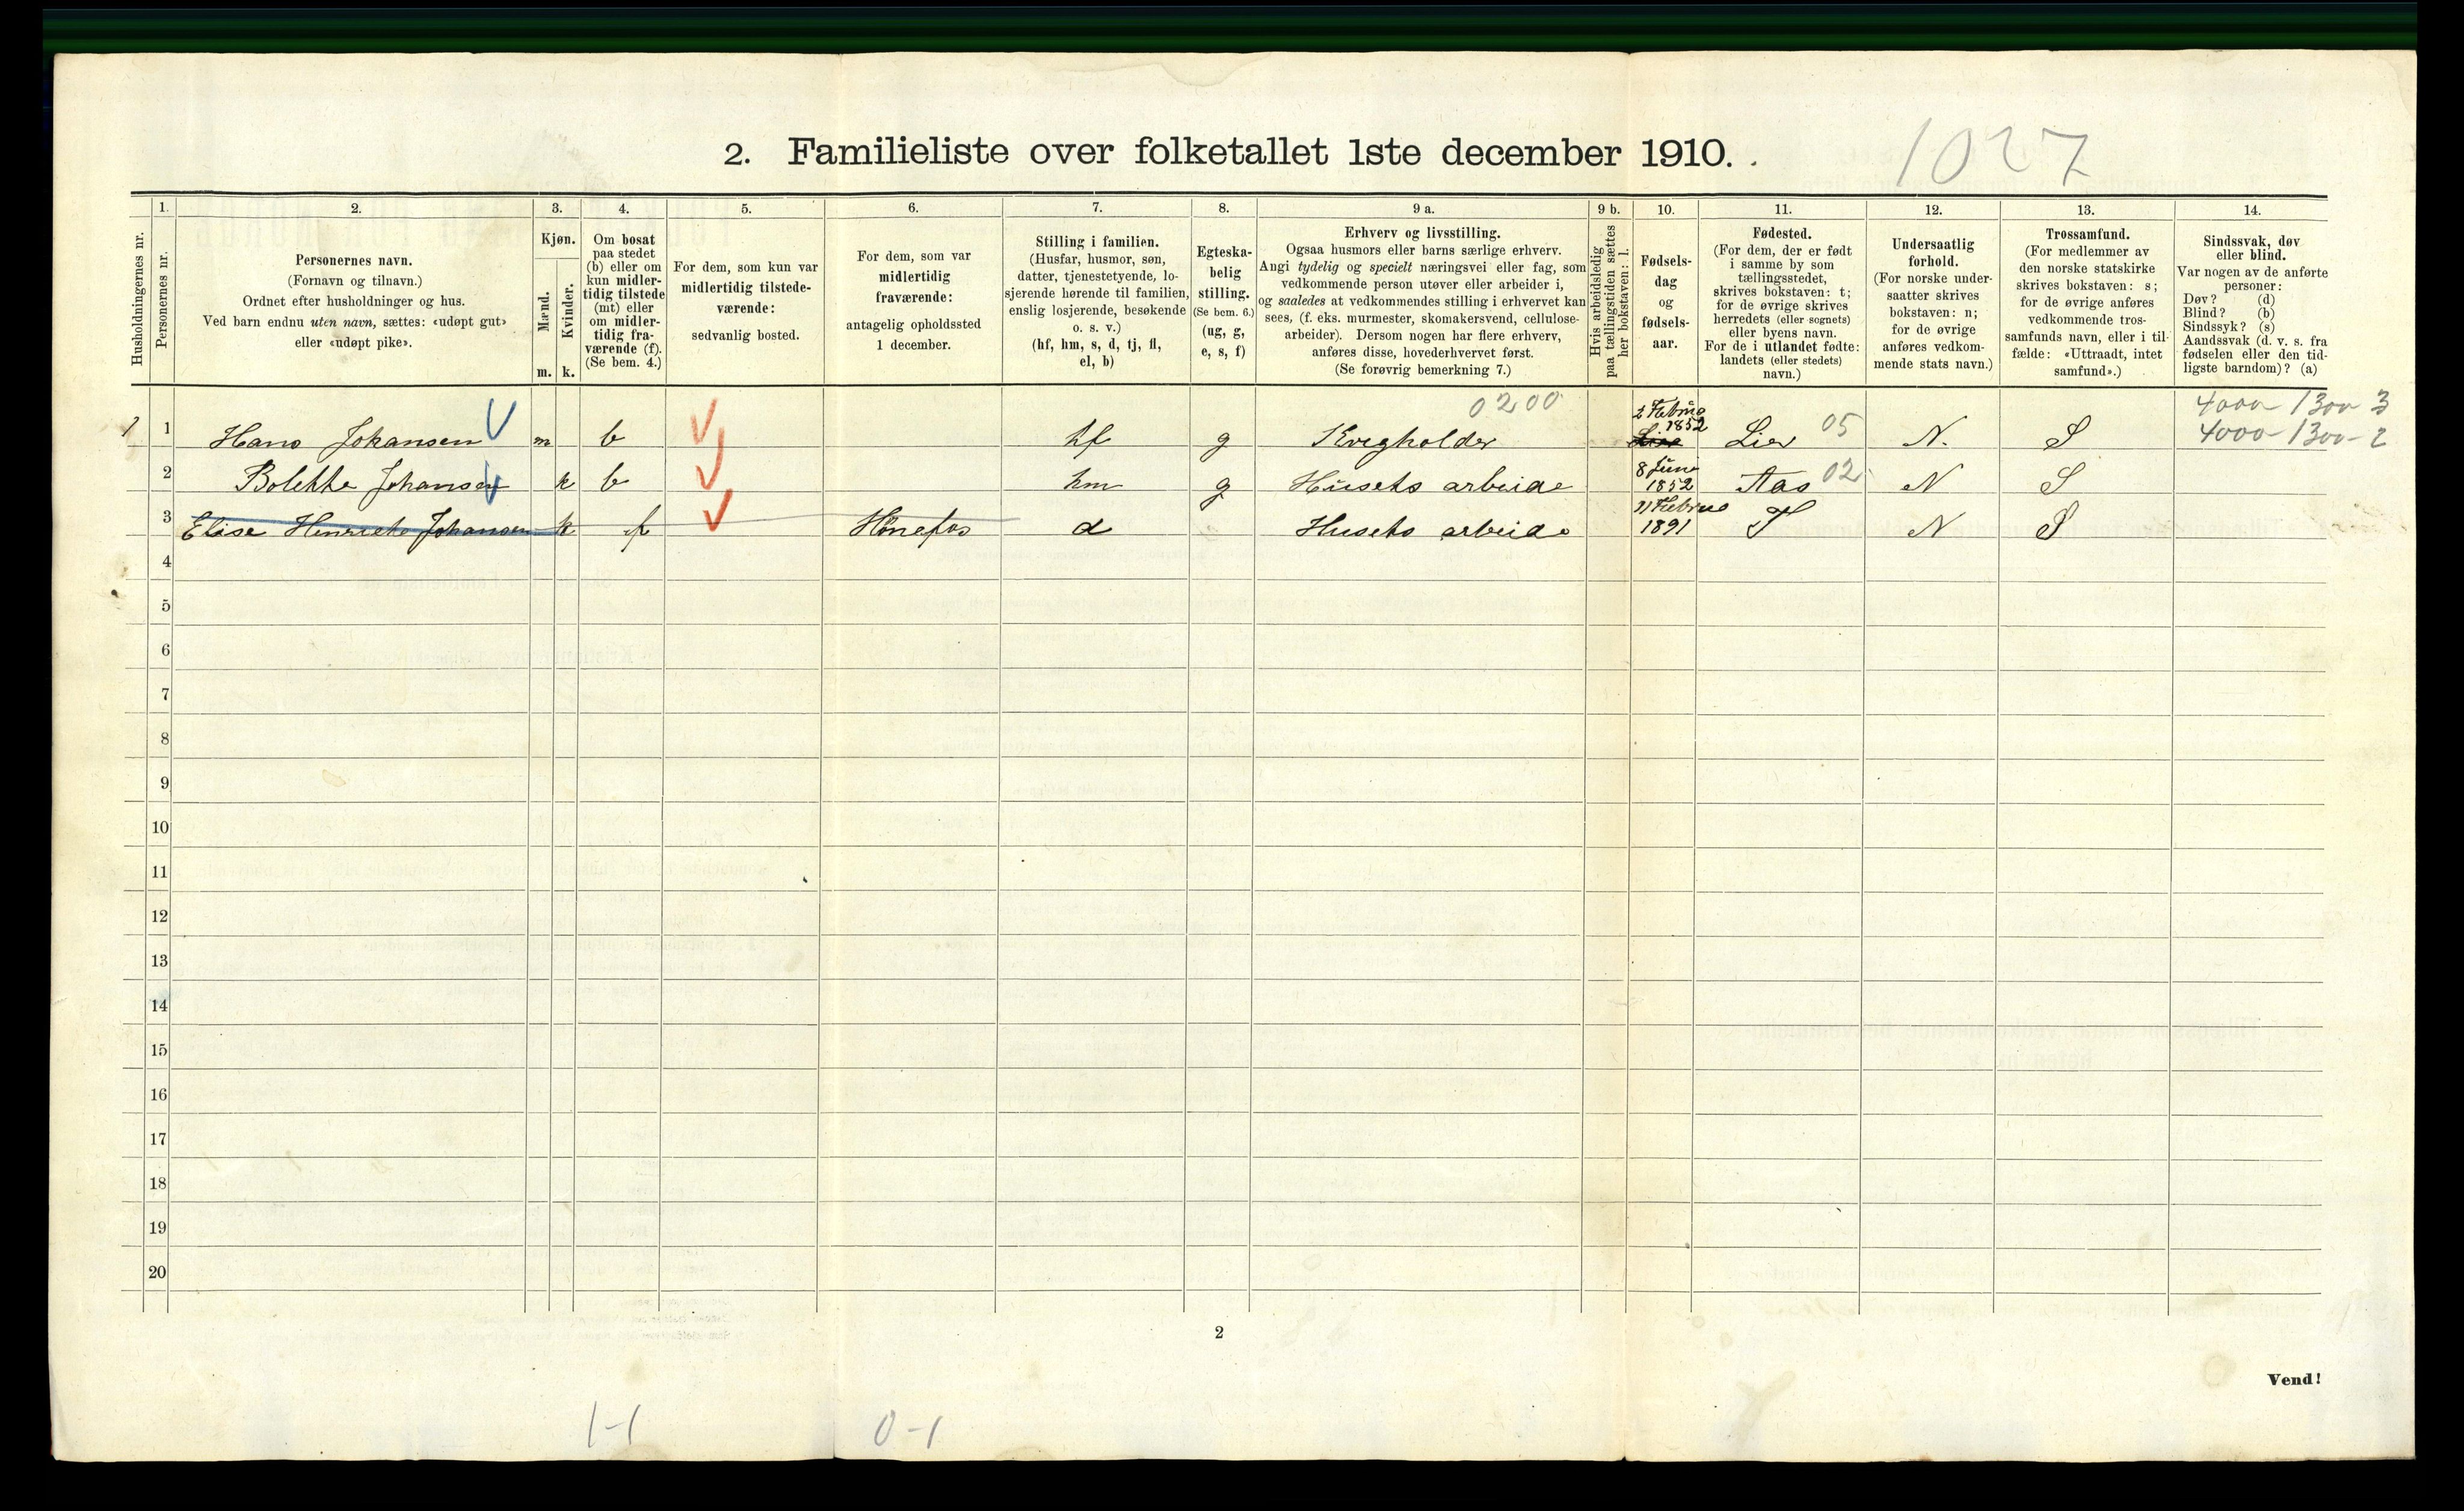 2. Familieliste over folketallet 1ste december 1910.
1027
Husholdningernes nr.
1.
Personernes nr.
2.
Personernes navn.
(Fornavn og tilnavn.)
Ordnet efter husholdninger og hus.
Ved barn endnu uten navn, sættes: «udøpt gut»
eller «udøpt pike».
3.
Kjøn.
Mænd.
Kvinder.
m. k.
4.
Om bosat
paa stedet
(b) eller om
kun midler-
tidig tilstede
(mt) eller
om midler-
tidig fra-
værende (f).
(Se bem. 4.)
5.
For dem, som kun var
midlertidig tilstede-
værende:
sedvanlig bosted.
6.
For dem, som var
midlertidig
fraværende:
antagelig opholdssted
1 december.
7.
Stilling i familien.
(Husfar, husmor, søn,
datter, tjenestetyende, lo-
sjerende hørende til familien,
enslig losjerende, besøkende
o. s. v.)
(hf, hm, s, d, tj, fl,
el, b)
8.
Egteska-
belig
stilling.
(Se bem. 6.)
(ug, g,
e, s, f)
9 a.
Erhverv og livsstilling.
Ogsaa husmors eller barns særlige erhverv.
Angi tydelig og specielt næringsvei eller fag, som
vedkommende person utøver eller arbeider i,
og saaledes at vedkommendes stilling i erhvervet kan
sees, (f. eks. murmester, skomakersvend, cellulose-
arbeider). Dersom nogen har flere erhverv,
anføres disse, hovederhvervet først.
(Se forøvrig bemerkning 7.)
9 b.
Hvis arbeidsledig
paa tællingstiden sættes
her bokstaven: l.
10.
Fødsels-
dag
og
fødsels-
aar.
11.
Fødested.
(For dem, der er født
i samme by som
tællingsstedet,
skrives bokstaven: t;
for de øvrige skrives
herredets (eller sognets)
eller byens navn.
For de i utlandet fødte:
landets (eller stedets)
navn.)
12.
Undersaatlig
forhold.
(For norske under-
saatter skrives
bokstaven: n;
for de øvrige
anføres vedkom-
mende stats navn.)
13.
Trossamfund.
(For medlemmer av
den norske statskirke
skrives bokstaven: s;
for de øvrige anføres
vedkommende tros-
samfunds navn, eller i til-
fælde: «Uttraadt, intet
samfund».)
14.
Sindssvak, døv
eller blind.
Var nogen av de anførte
personer:
Døv? (d)
Blind? (b)
Sindssyk? (s)
Aandssvak (d. v. s. fra
fødselen eller den tid-
ligste barndom)? (a)
0200
4000-1300-3
1 1 Hans Johansen m b hf g Kvegholder 2 Februa 1852 Lier 05 N. S 4000-1300-2
2 Bolette Johansen k b hm g Husets arbeide 8 Juni 1852 Aas 02 N S
3 Elise Henriette Johansen k f Hønefos d Husets arbeide Februa 1891 T N S
4
5
6
7
8
9
10
11
12
13
14
15
16
17
18
19
20
2
Vend!
1-1
0-1